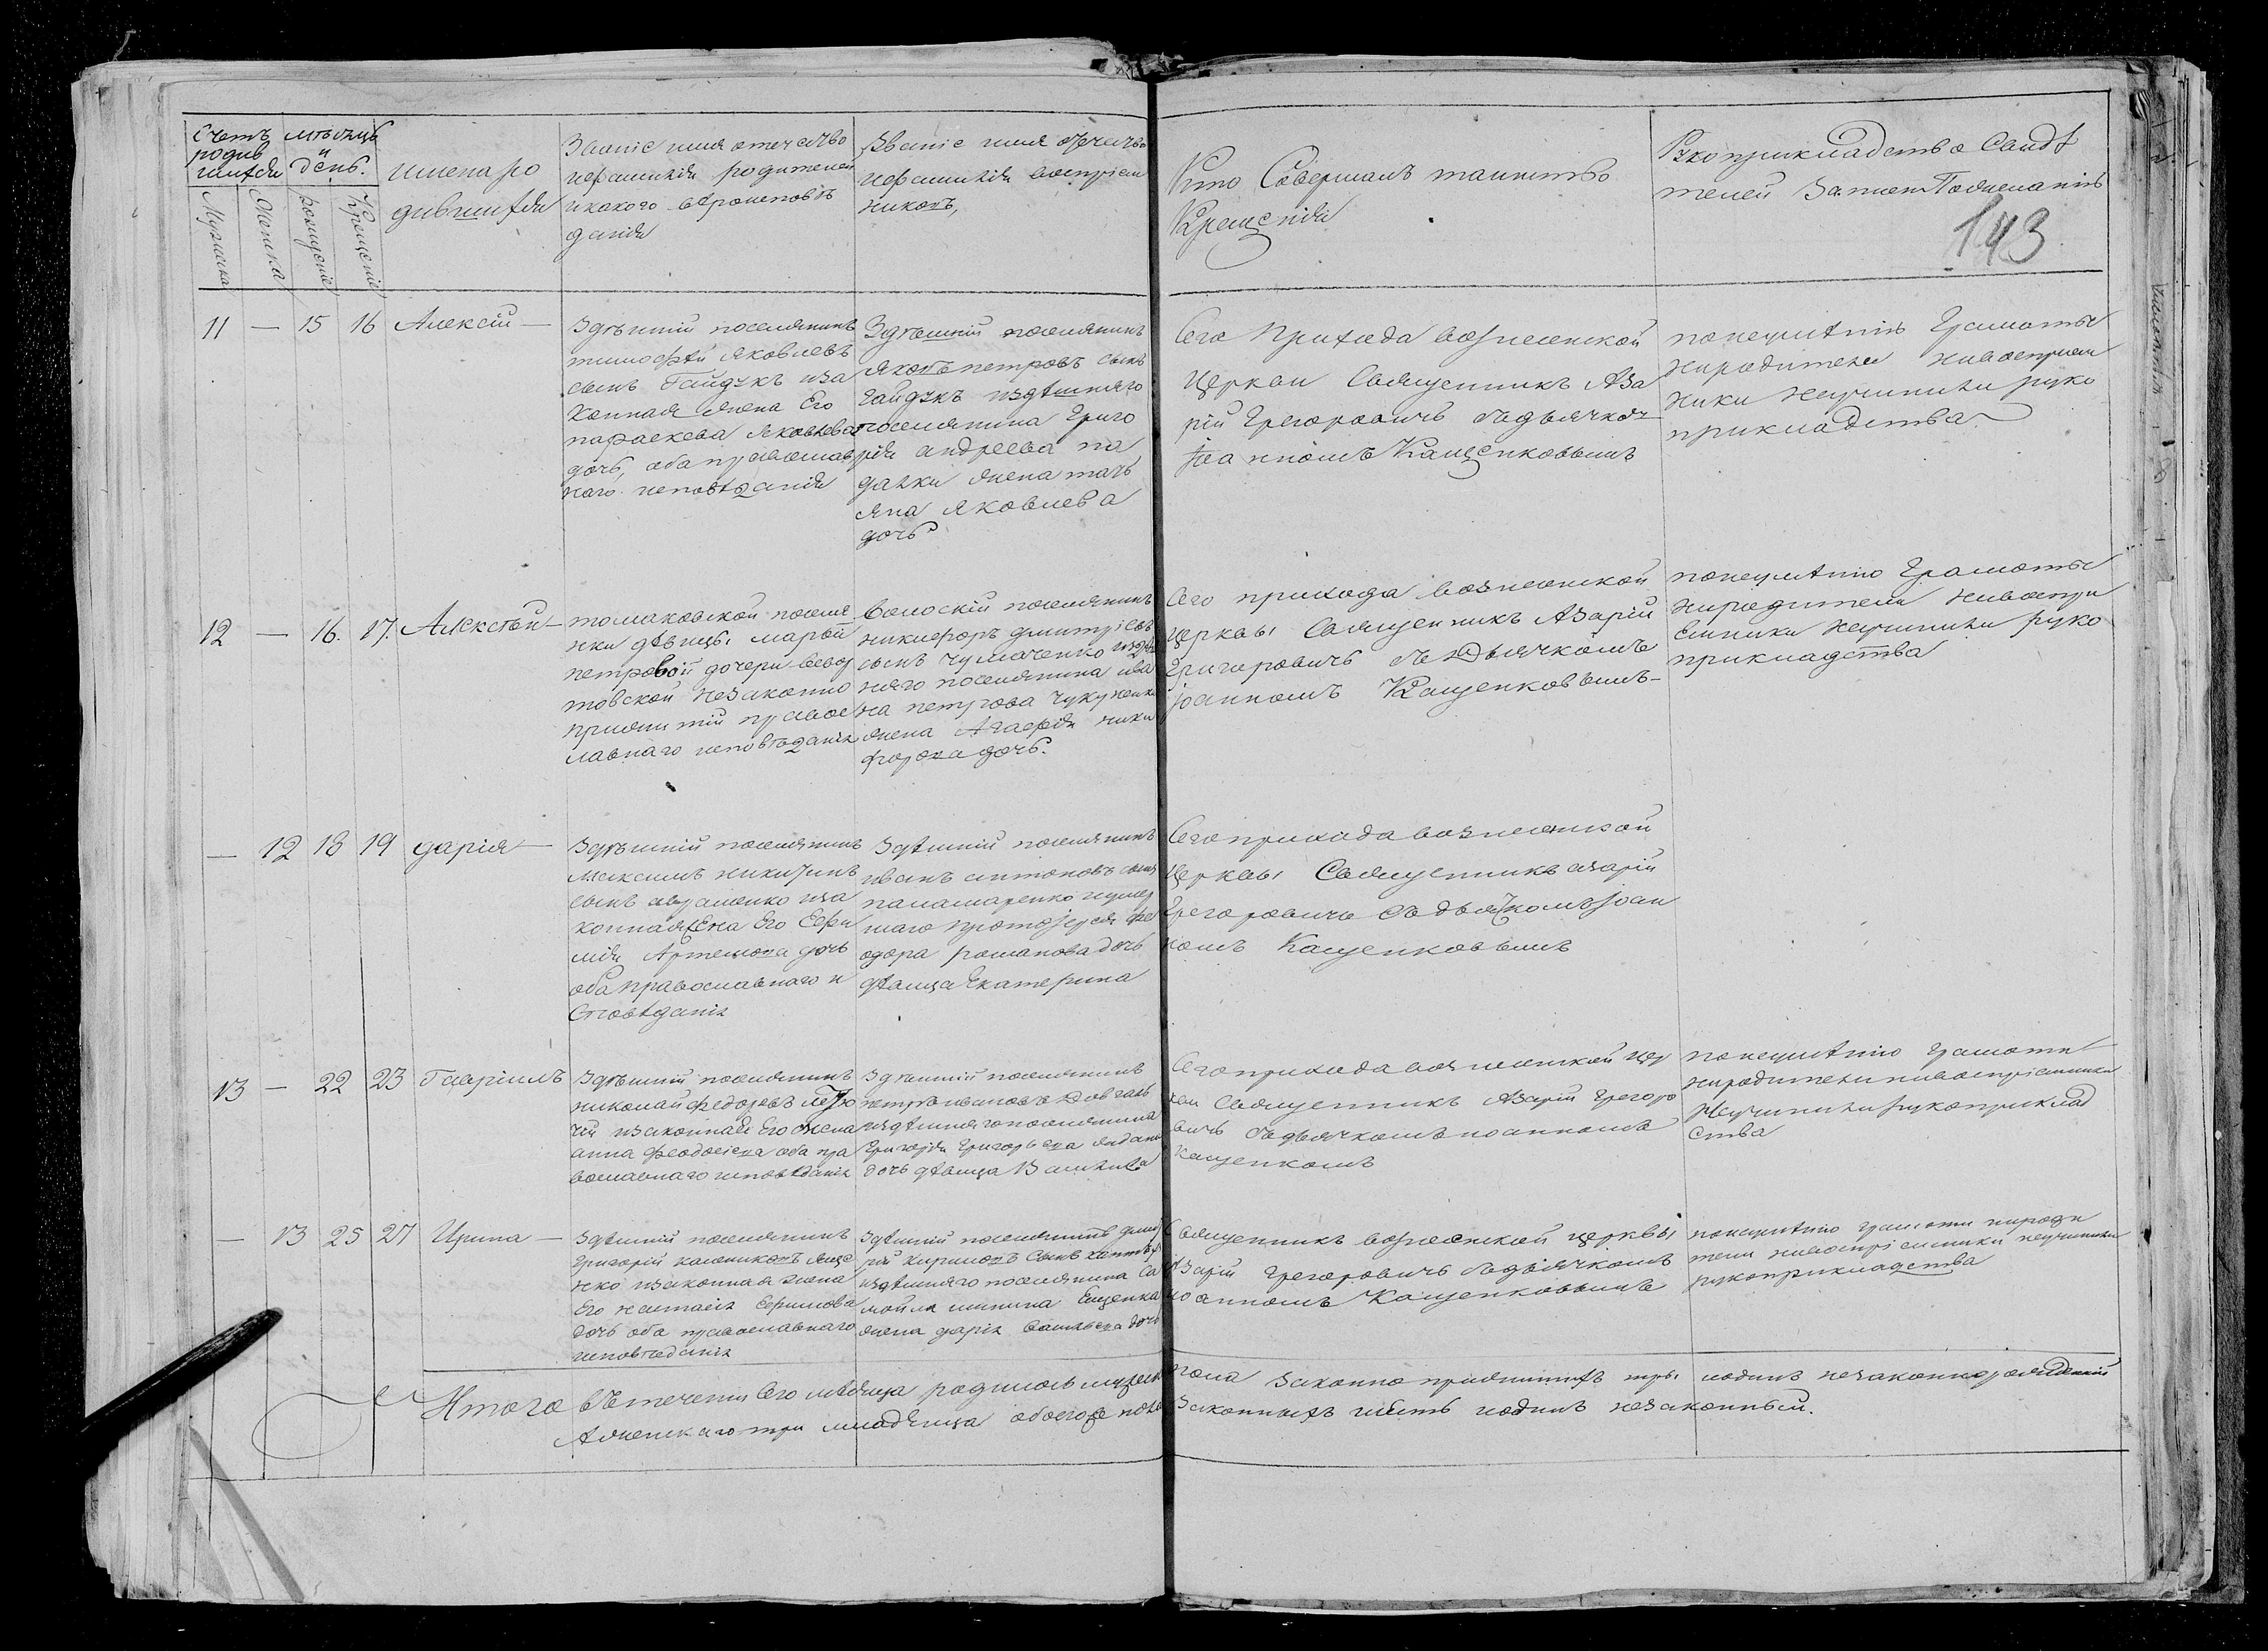 Счетъ родив шихся
мѣсяцъ и день.
Мужеска
Женска
рожденіе
Крещеніе
имена ро
дившихся
Званіе имя отечество
иеѣ фамилія родителей
и какого вѣроисповѣ
данія
Званіе имя отечество
и фамилія воспріем
никовъ,
Кто Совершалъ таинство
Крещенія
Рукоприкладство Свидѣ
телей записи По желанію
143
11 — 15 16 Алексій —
Здѣшній поселянинъ
тимофѣй яковлевъ
сынъ Гайдукъ иза
конная жена Его
параскева яковлева
дочь, оба православ
наго исповѣданія
Здѣшній поселянинъ
яковъ петровъ сынъ
гайдукъ издѣшняго
поселянина григо
рія андреева па
далки жена тать
яна яковлева
дочь
Сего Прихода вознесенской
церкви Священникъ Аза
рій Григоровичъ съдьячкомъ
Іоанномъ Кащенковымъ
понеумѣнію Грамоты
ниродители нивоспріем
ники неучинили руко
прикладства
12 — 16. 17. Алексѣй —
томаковской поселя
нки дѣвицы марѳи
петровой дочери
товской незаконно
прижитій правос
лавнаго исповѣданія
волоскій поселянинъ
никифоръ дмитріевъ
сынъ чумаченко издѣш
няго поселянина ива
на петрова
жена Агафія ники
форова дочь.
Сего прихода вознесенской
церквы Священникъ Азарій
Григоровичъ съ Дьячкомъ
Іоанномъ Кащенковымъ —
понеумѣнію Грамоты
ниродители нивоспри
емники неучинили руко
прикладства
— 12 18 19 дарія —
Здѣшній поселянинъ
Максимъ никитинъ
сынъ авраменко иза
конная жена Его Евфи
мія Артемова дочь
оба православнаго и
Споведанія
Здѣшній поселянинъ
иванъ антоновъ сынъ
панамаренко иумер
шаго протоіерея фе
одора романова дочь
дѣвица Екатерина
Сего прихода вознесенской
Церквы Священникъ азарій
Григоровичъ съ дьячкомъ Іоан
номъ Кащенковымъ
13 — 22 23 Гавріилъ
Здѣшній поселянинъ
николай федоровъ
чій изаконная Его жена
анна феодосіева оба пра
вославнаго исповѣданія
Здѣшній поселянинъ
петръ ивановъ Довгаль
издѣшняго поселянина
Григорія Григорьева
дочь дѣвица Василиса
Сего прихода вознесенской цер
кви Священникъ Азарій Григоро
вичъ съдьячкомъ иоанномъ
кащенкомъ
понеумѣнію грамоти
ниродители нивоспріемники
неучинили рукоприклад
ства
— 13 25 27 Ирина —
Здѣшній поселянинъ
григорій калениковъ яще
нко изаконная жена
Его настасія Ефимова
дочь оба православнаго
исповѣданія
Здѣшній поселянинъ дмит
рій кириловъ сынъ
издѣшняго поселянина са
мойла минина Ещенка
жена дарія васильева дочь
Священникъ вознесенской церквы
Азарій Григоровичъ съдьячкомъ
иоанномъ Кащенковымъ
понеумѣнію грамоти нироди
тели нивоспріемники неучинили
рукоприкладства
Итого въ теченіи Сего мѣсяца родилось мужеска пола законно прижитыхъ три иодинъ незаконнорожденній
женскаго три младенца обоего пола законныхъ шесть иодинъ незаконный.